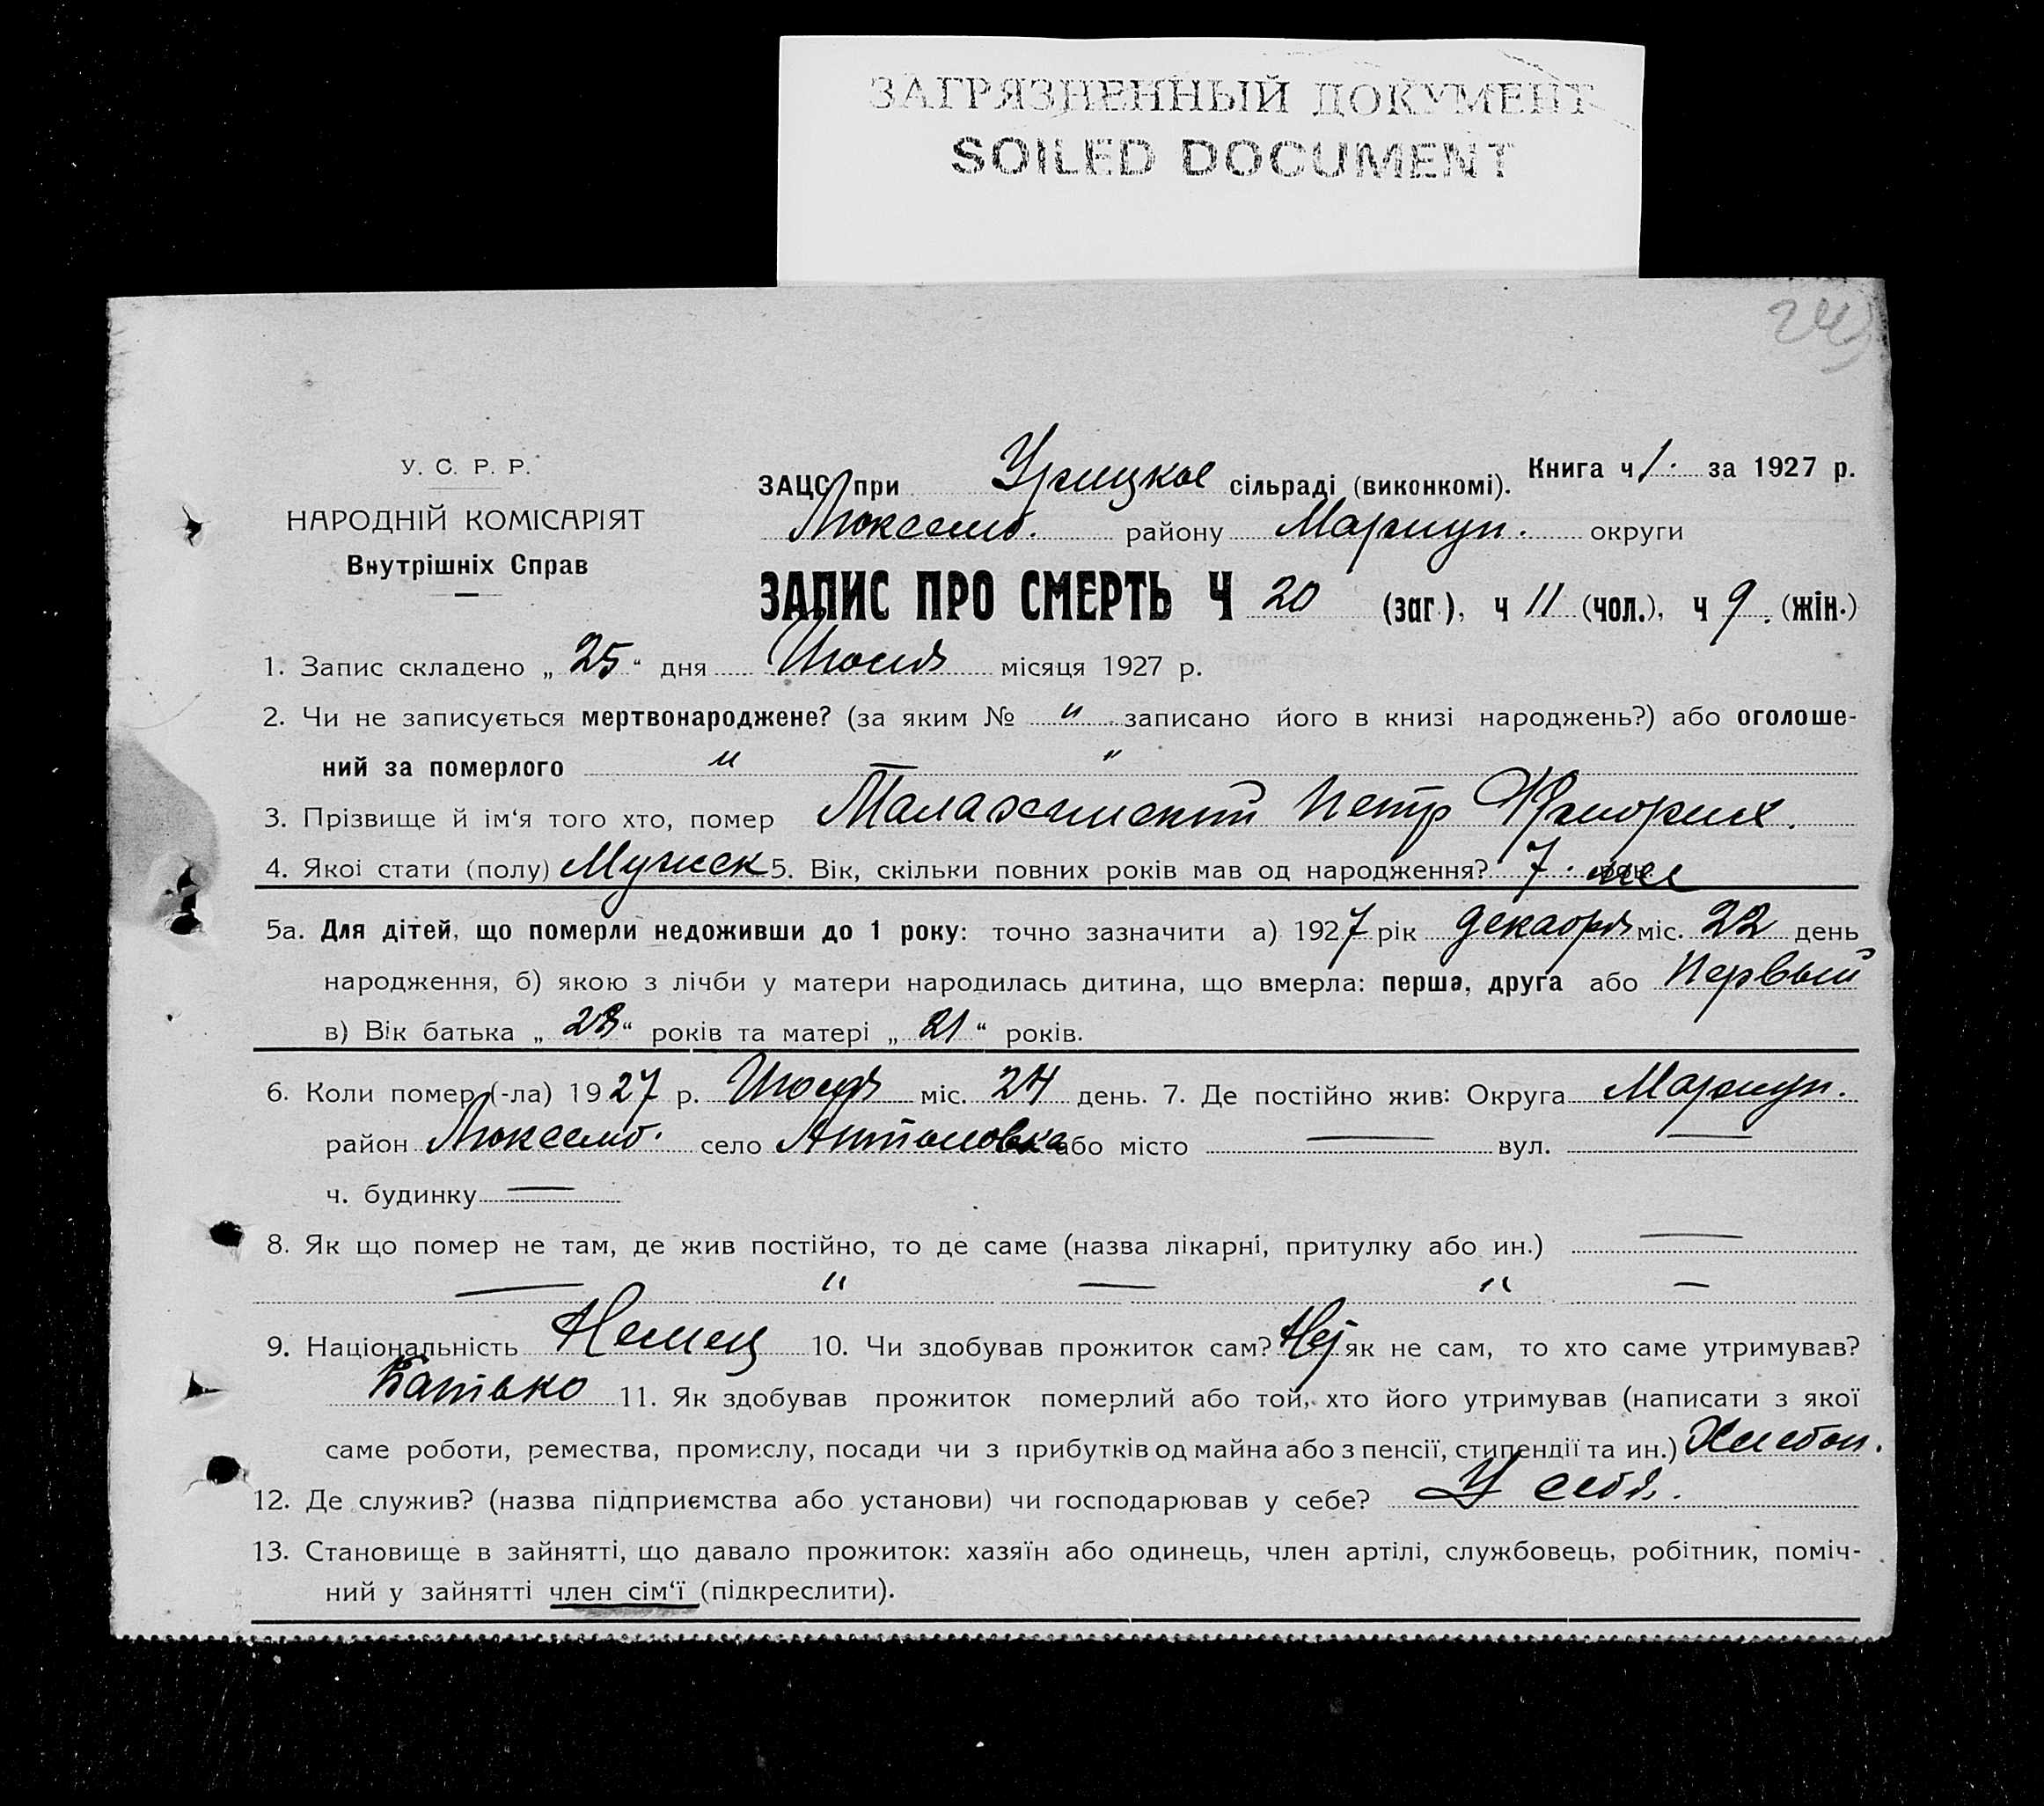 ЗАГРЯЗНЕННЫЙ ДОКУМЕНТ
SOILED DOCUMENT
У. С. Р. Р.
НАРОДНІЙ КОМІСАРІЯТ
Внутрішніх Справ
ЗАЦС при Урицкое сільраді (виконкомі). Книга ч 1. за 1927 р.
Люксемб. району Мариуп. округи
ЗАПИС ПРО СМЕРТЬ Ч 20 (заг.), ч 11 (чол.), ч 9. (жін.)
1. Запис складено „ 25 “ дня Июля місяця 1927 р.
2. Чи не записується мертвонароджене? (за яким № " записано його в книзі народжень?) або оголоше-
ний за померлого " "
3. Прізвище й ім‘я того хто, помер Петр
4. Якої стати (полу) Мужск 5. Вік, скільки повних років мав од народження? 7. мес
5а. Для дітей, що померли недоживши до 1 року: точно зазначити а) 1927 рік декабря міс. 22 день
народження, б) якою з лічби у матери народилась дитина, що вмерла: перша, друга або Первый
в) Вік батька „ 23 “ років та матері „ 21 “ років.
6. Коли помер (-ла) 1927 р. Июля міс. 24 день. 7. Де постійно жив: Округа Мариуп.
район Люксемб. село Антоновка або місто — вул. —
ч. будинку —
8. Як що помер не там, де жив постійно, то де саме (назва лікарні, притулку або ин.) —
— " — " —
9. Національність Немец 10. Чи здобував прожиток сам? Нет як не сам, то хто саме утримував?
Батько 11. Як здобував прожиток померлий або той, хто його утримував (написати з якої
саме роботи, ремества, промислу, посади чи з прибутків од майна або з пенсії, стипендії та ин.) Хлебоп.
12. Де служив? (назва підприємства або установи) чи господарював у себе? У себя.
13. Становище в зайнятті, що давало прожиток: хазяїн або одинець, член артілі, службовець, робітник, поміч-
ний у зайнятті член сім‘ї (підкреслити).